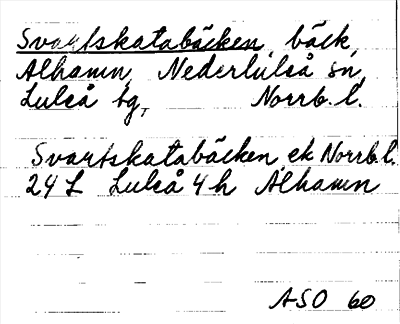 Svartskatabäcken, bäck,
Alhamn, Nederluleå sn,
Luleå tg, Norrb. l.
Svartskatabäcken ek Norrb.l.
24 L Luleå 4 h Alhamn
ASO 60